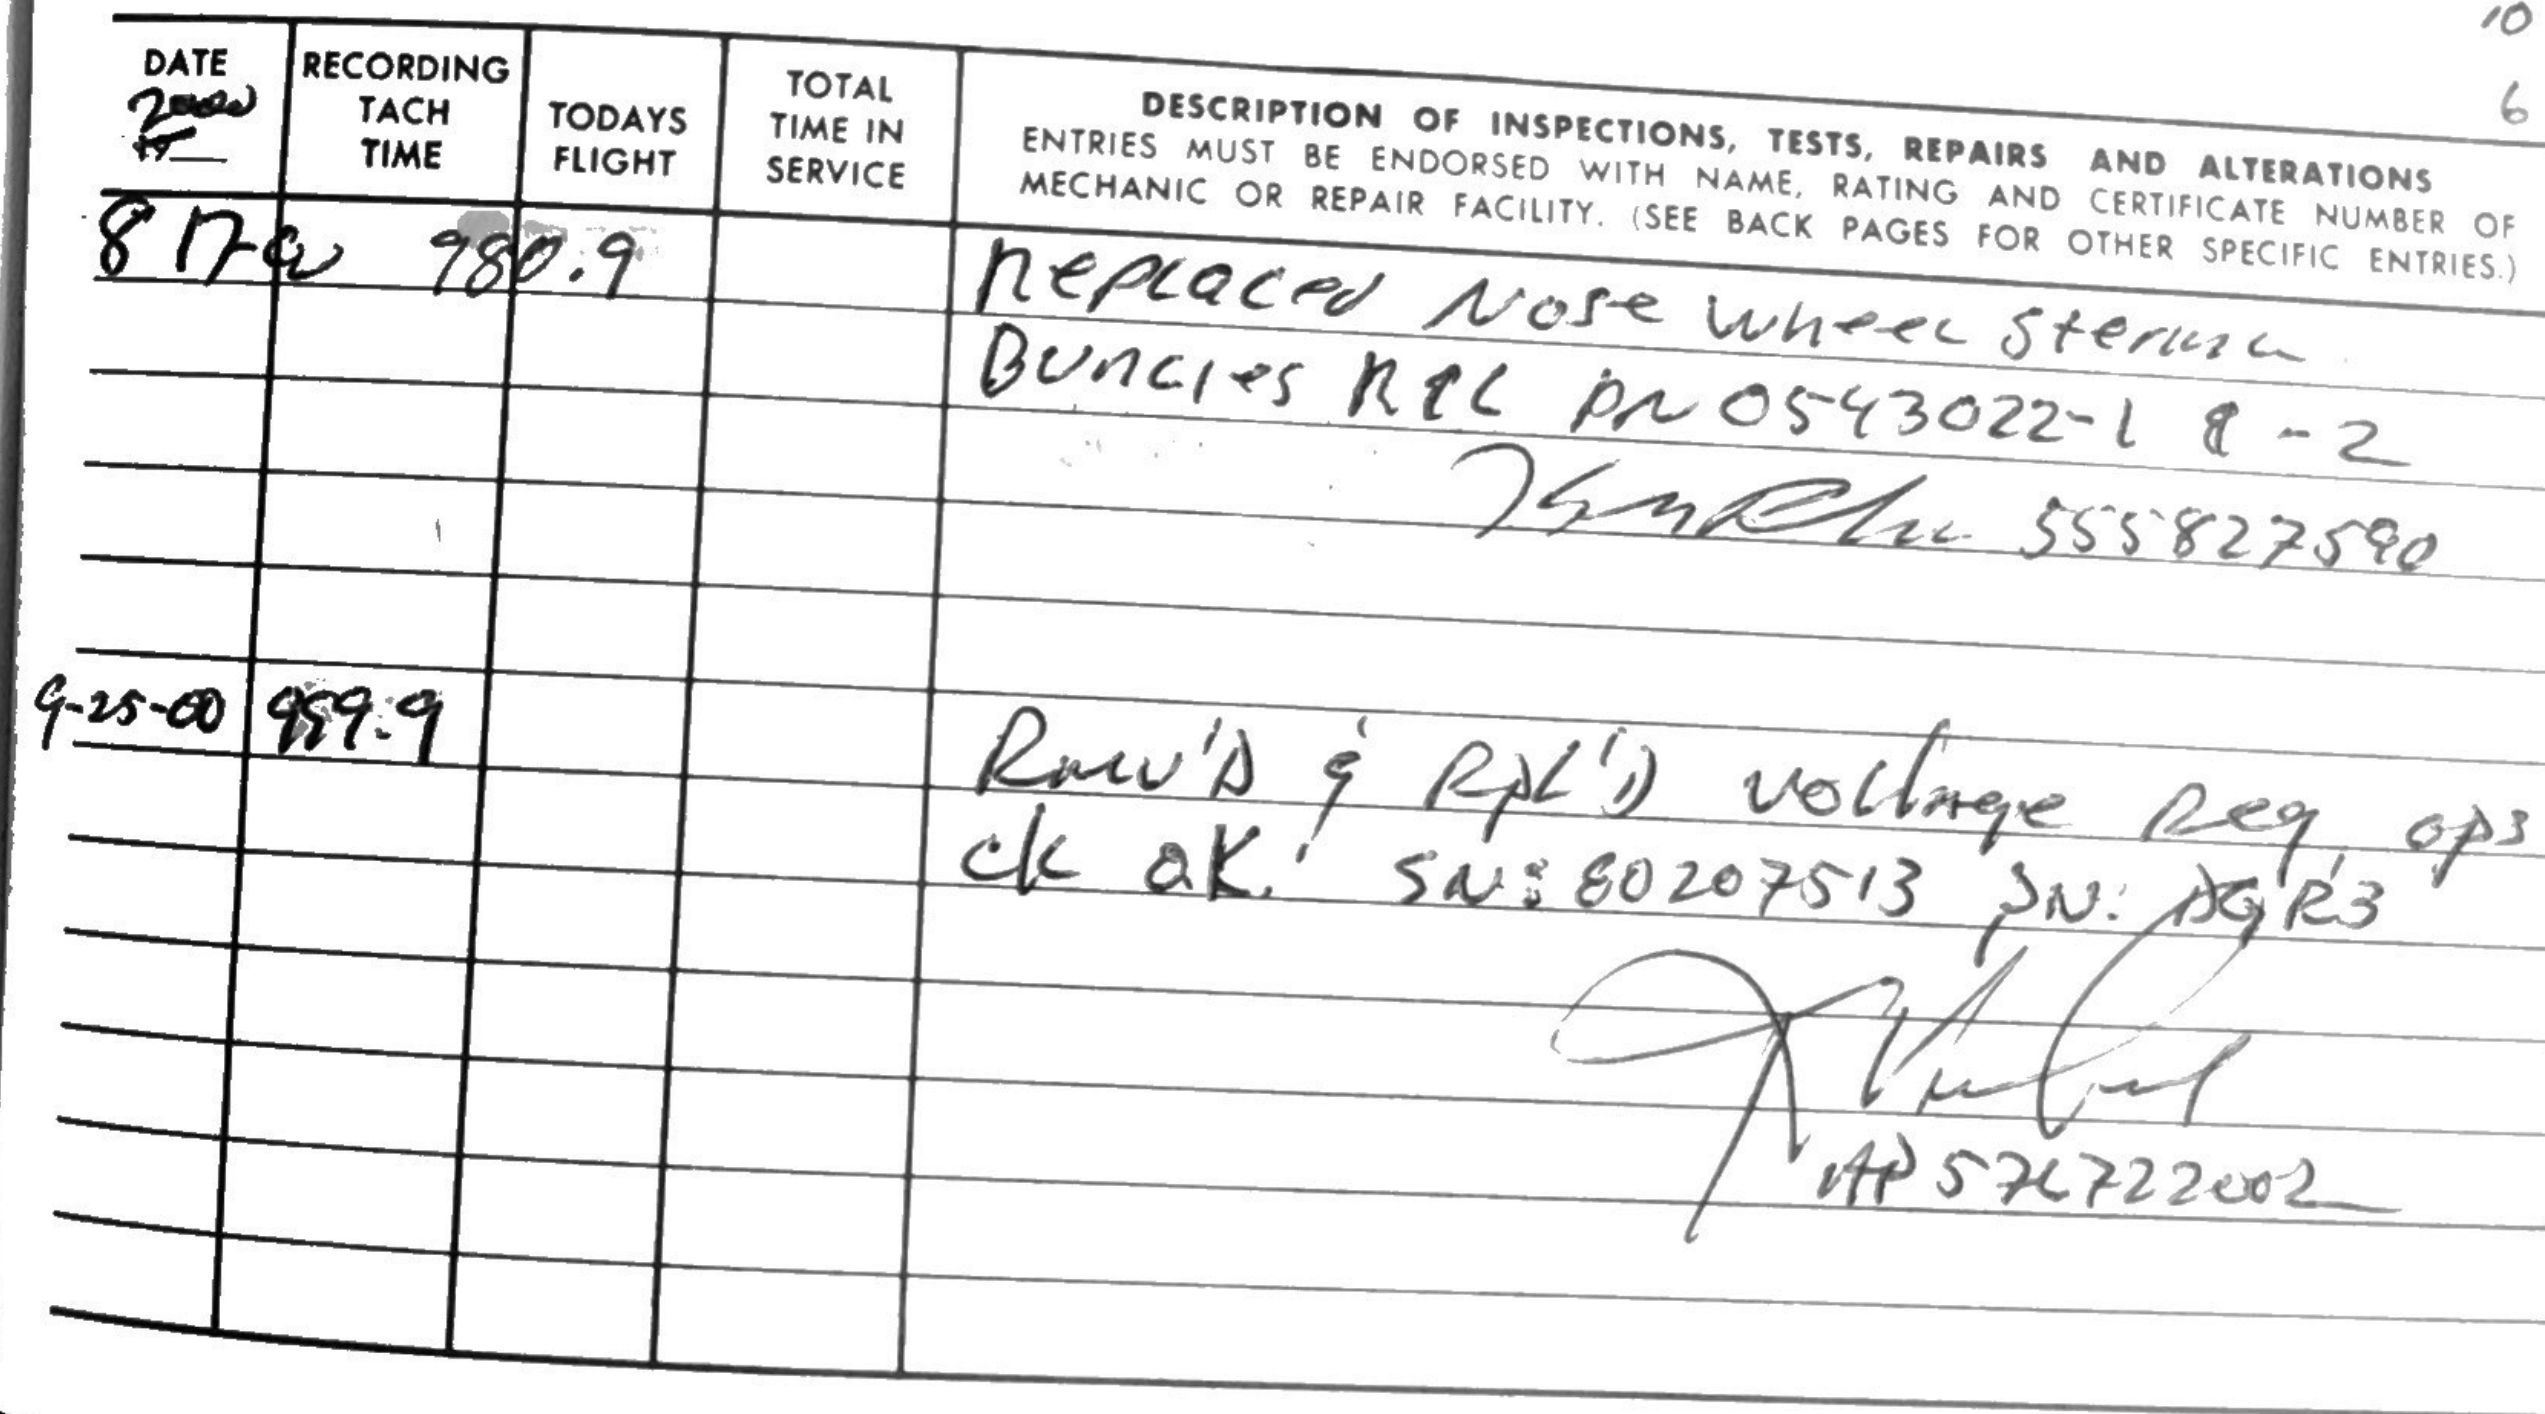 10
6
DATE
2000
19
RECORDING
TACH
TIME
TODAYS
FLIGHT
TOTAL
TIME IN
SERVICE
DESCRIPTION OF INSPECTIONS, TESTS, REPAIRS AND ALTERATIONS
ENTRIES MUST BE ENDORSED WITH NAME, RATING AND CERTIFICATE NUMBER OF
MECHANIC OR REPAIR FACILITY. (SEE BACK PAGES FOR OTHER SPECIFIC ENTRIES.)
8 17 980.9 Replaced Nose Wheel
R & L PN 0543022-1 & -2
555827590
9-25-00 989.9 Rmv'D & Rpl'D voltage Reg, ops
ck ok. SN: 80207513 PN:
AP 576722002